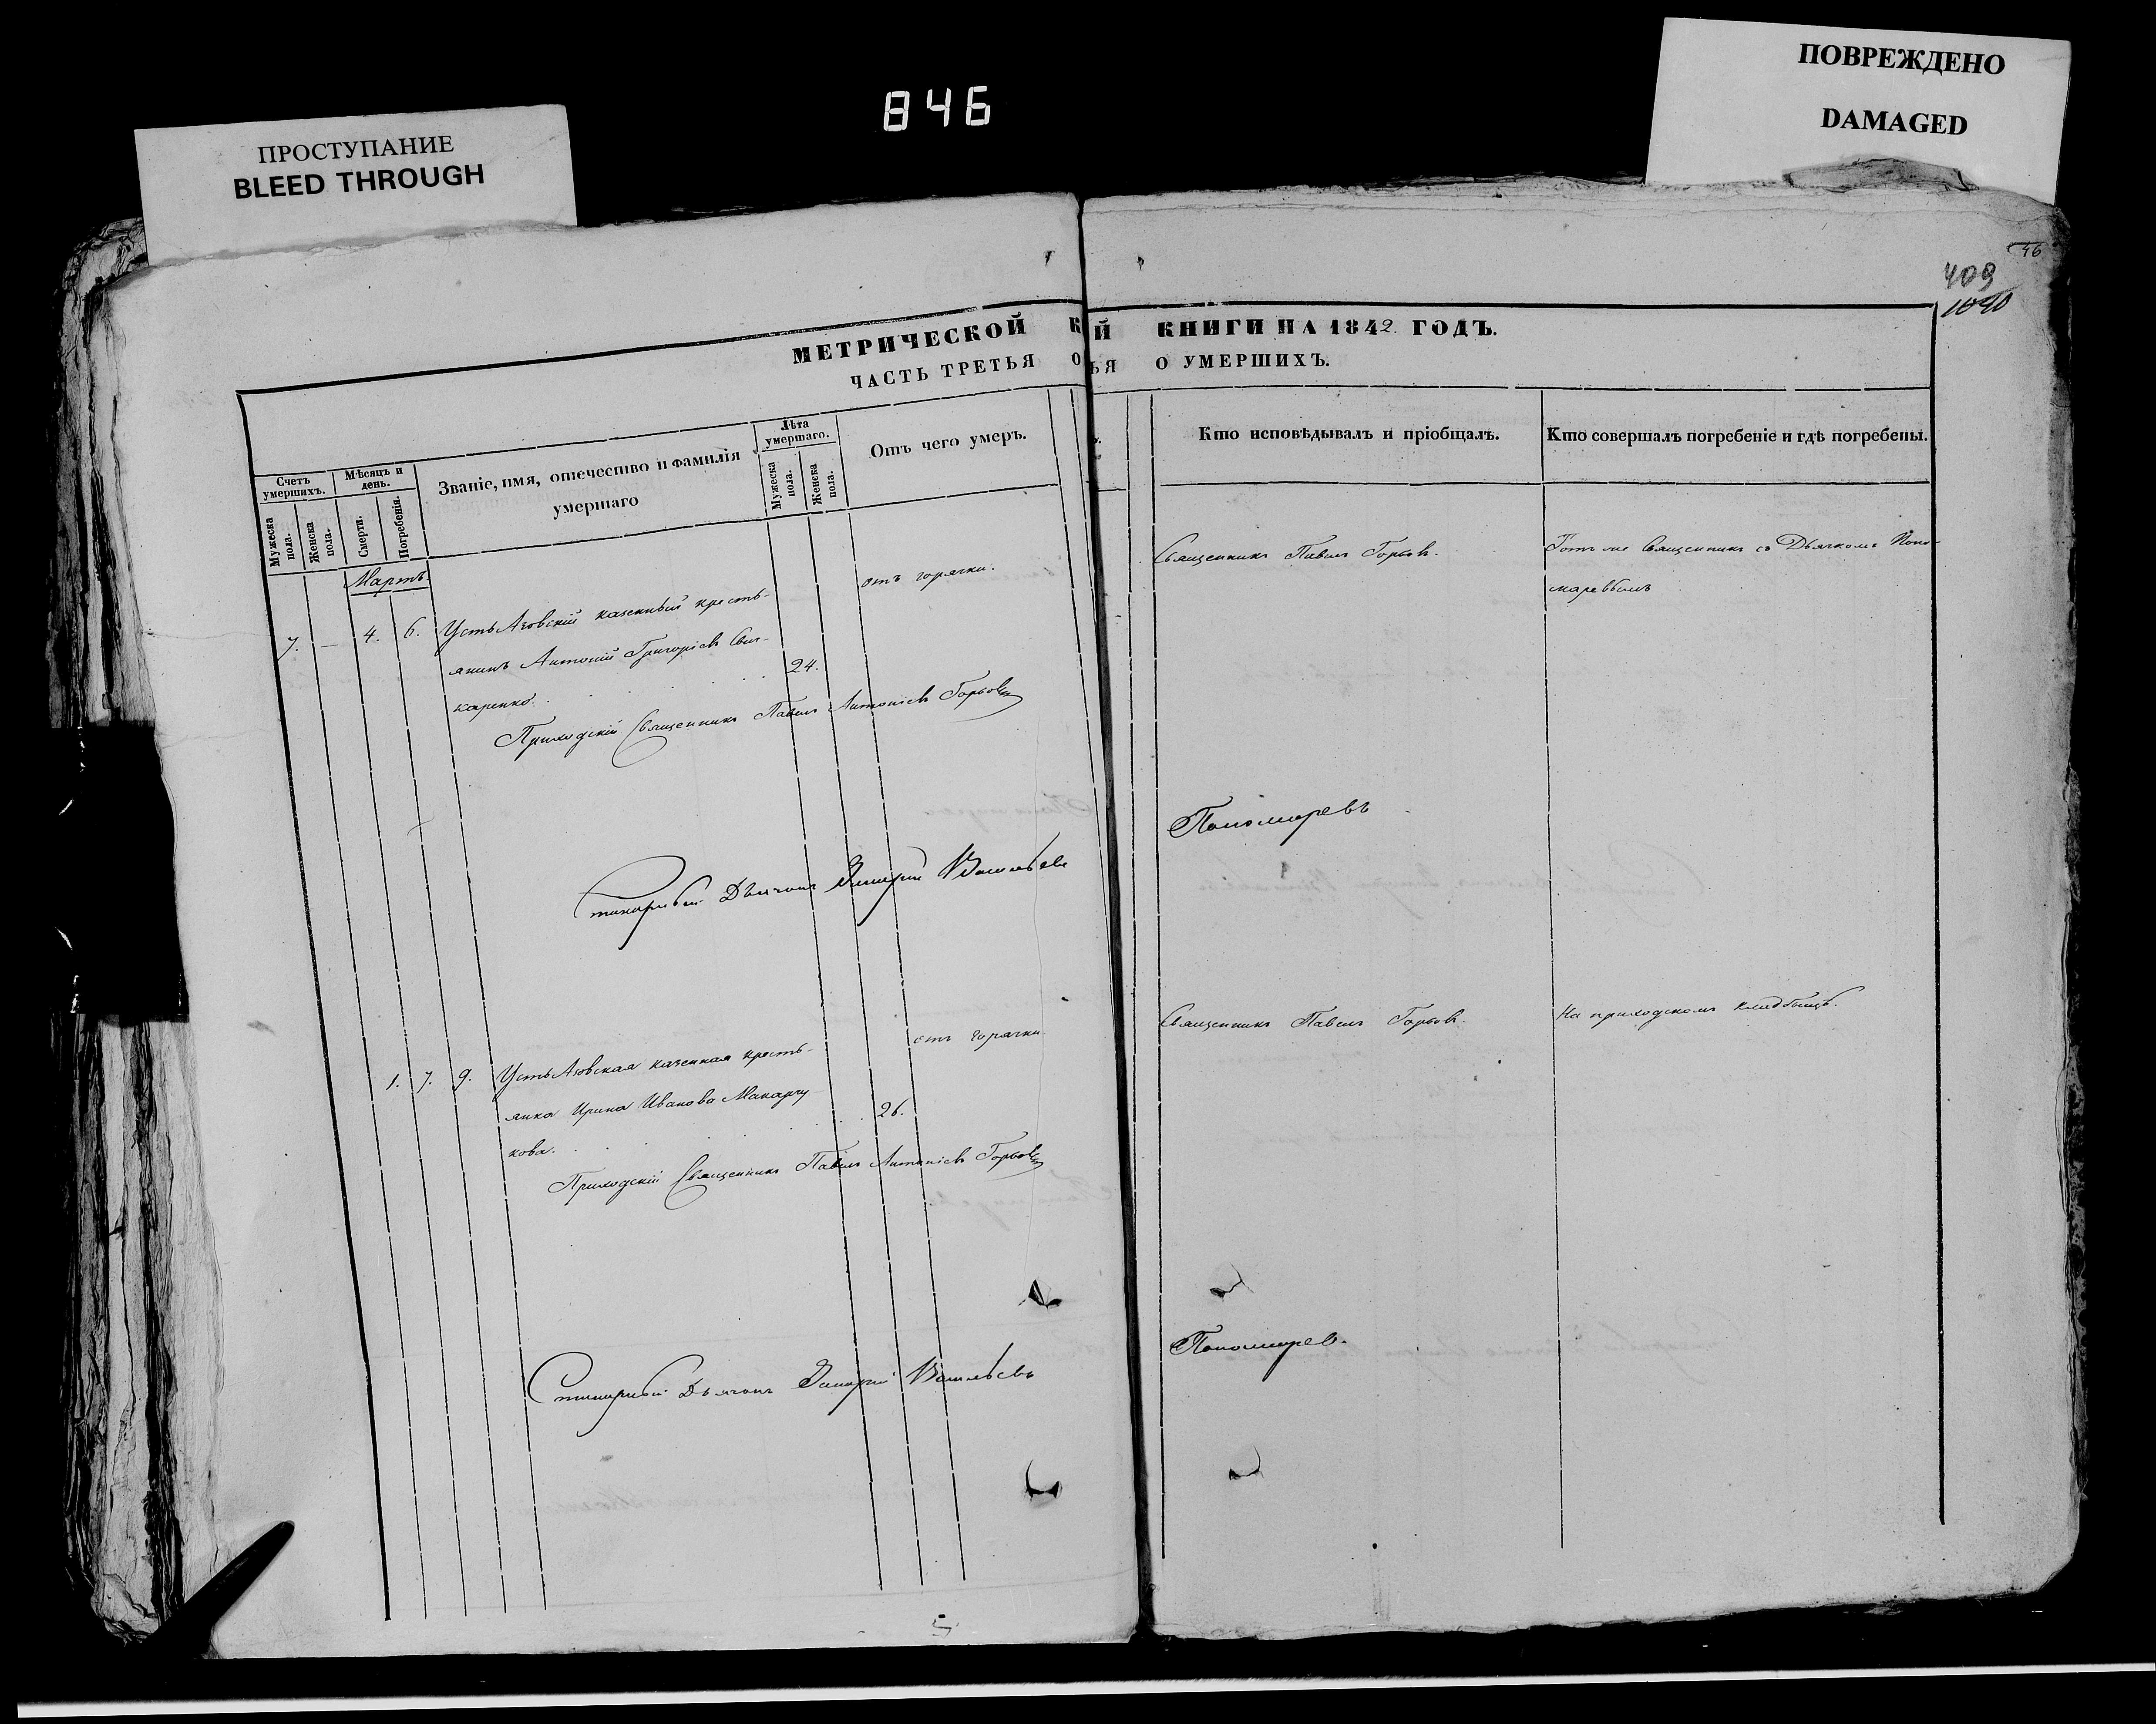 ПРОСТУПАНИЕ
BLEED THROUGH
846
ПОВРЕЖДЕНО
DAMAGED
46
409
1040
МЕТРИЧЕСКОЙ К
ЧАСТЬ ТРЕТЬЯ О
Счетъ умершихъ.
Мужеска пола.
Женска пола.
Мѣсяцъ и день.
Смерти.
Погребенія.
Званіе, имя, отечество и фамилія
умершаго
Лѣта умершаго.
Мужеска пола.
Женска пола.
Отъ чего умеръ.
Мартъ
7. — 4. 6. Усть Азовскій казенный кресть-
янинъ Антоній Григоріевъ
каренко. 24.
отъ горячки.
Приходскій Священникъ Павелъ Антоніевъ Горбовъ
Дьячокъ Васильевъ
1. 7. 9. Усть Азовская казенная кресть-
янка Ирина Иванова Макарчу-
кова. 26.
отъ горячки
Приходскій Священникъ Павелъ Антоніевъ Горбовъ
Дьячокъ Васильевъ
Й КНИГИ НА 1842. ГОДЪ.
ЬЯ О УМЕРШИХЪ.
Кто исповѣдывалъ и пріобщалъ.
Кто совершалъ погребеніе и гдѣ погребены.
Священникъ Павелъ Горбовъ.
Тотъ же Священникъ съ Дьячкомъ Поно-
маревымъ
Пономаревъ
Священникъ Павелъ Горбовъ.
На приходскомъ кладбищѣ.
Пономарев.